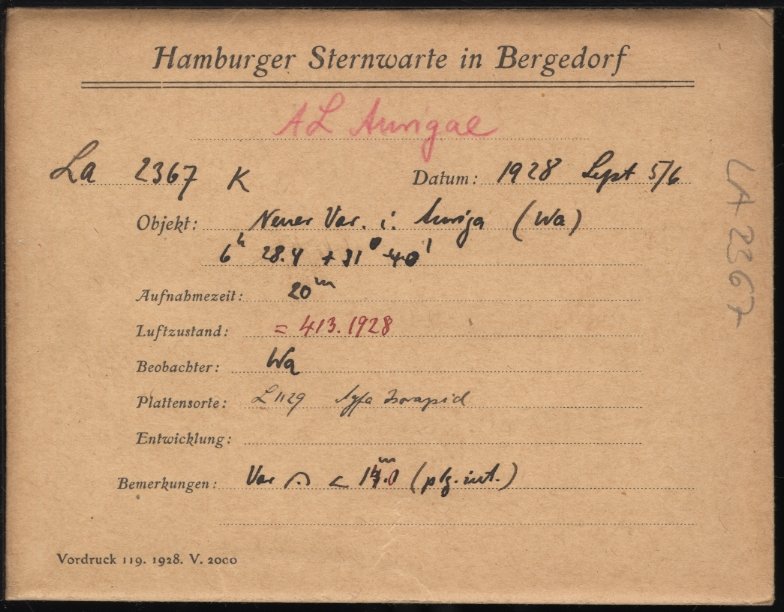 Hamburger Sternwarte in Bergedorf
AL Aurigae
La 2367 K Datum: 1928 Sept 5/6
Objekt: Neuer Var. i. Auriga (Wa)
6ʰ 28.4 + 31° 40'
Aufnahmezeit: 20ᵐ
Luftzustand: = 413.1928
Beobachter: Wa
Plattensorte: L 1129 Agfa Isorapid
Entwicklung:
Bemerkungen: Var < (plg. int.)
Vordruck 119. 1928. V. 2000
LA 2367